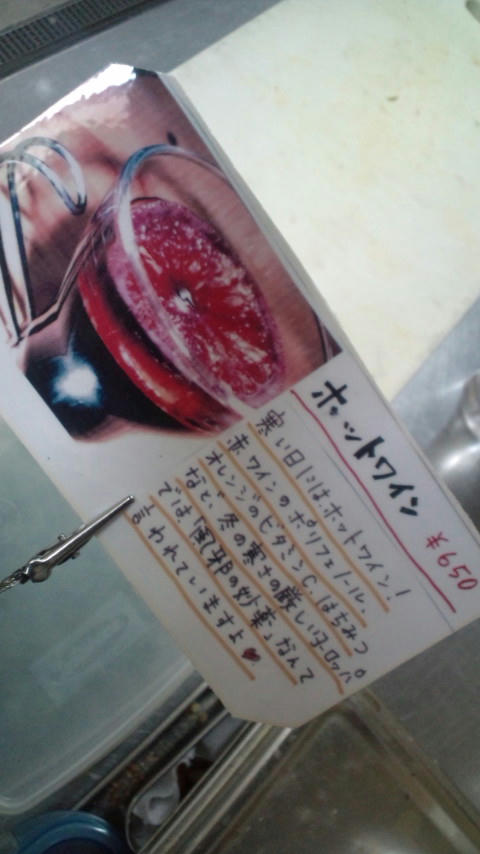 ホットワイン ¥650
寒い日には、ホットワイン!
赤ワインのポリフェノール、
オレンジのビタミンC、はちみつ
など、冬の寒さの厳しいヨーロッパ
では、「風邪の妙薬」なんて
言われていますよ♥